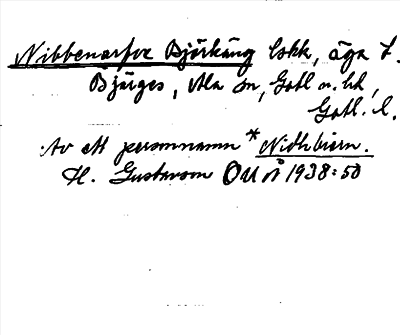 Nibbenarfve Björkäng lshk, äga t.
Bjärges, Ala sn, Gotl n. hd,
Gotl. l.
Av ett personnamn *Nidhbiern.
H. Gustavson OUÅ 1938:50